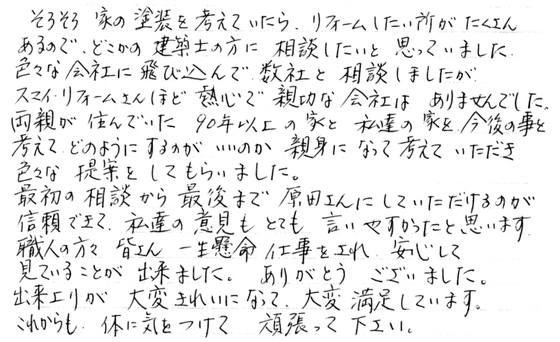 そろそろ 家の塗装を考えていたら、リフォームしたい所が たくさん
あるので、どこかの 建築士の方に 相談したいと 思っていました。
色々な会社に飛び込んで 数社と 相談しましたが
スマイ・リフォームさんほど 熱心で 親切な 会社は ありませんでした。
両親が 住んでいた 90年以上 の 家と 私達の 家を、今後の事を
考えて、どのようにするのが いいのか 親身に なって 考えて いただき
色々な 提案を してもらいました。
最初の 相談から 最後まで 原田さんに していただけるのが
信頼できて、私達の 意見も とても 言いやすかったと 思います。
職人の方々 皆さん 一生懸命 仕事をされ、安心して
見ていることが 出来ました。 ありがとう ございました。
出来上りが 大変 きれいに なって、大変 満足しています。
これからも、体に気をつけて 頑張って 下さい。